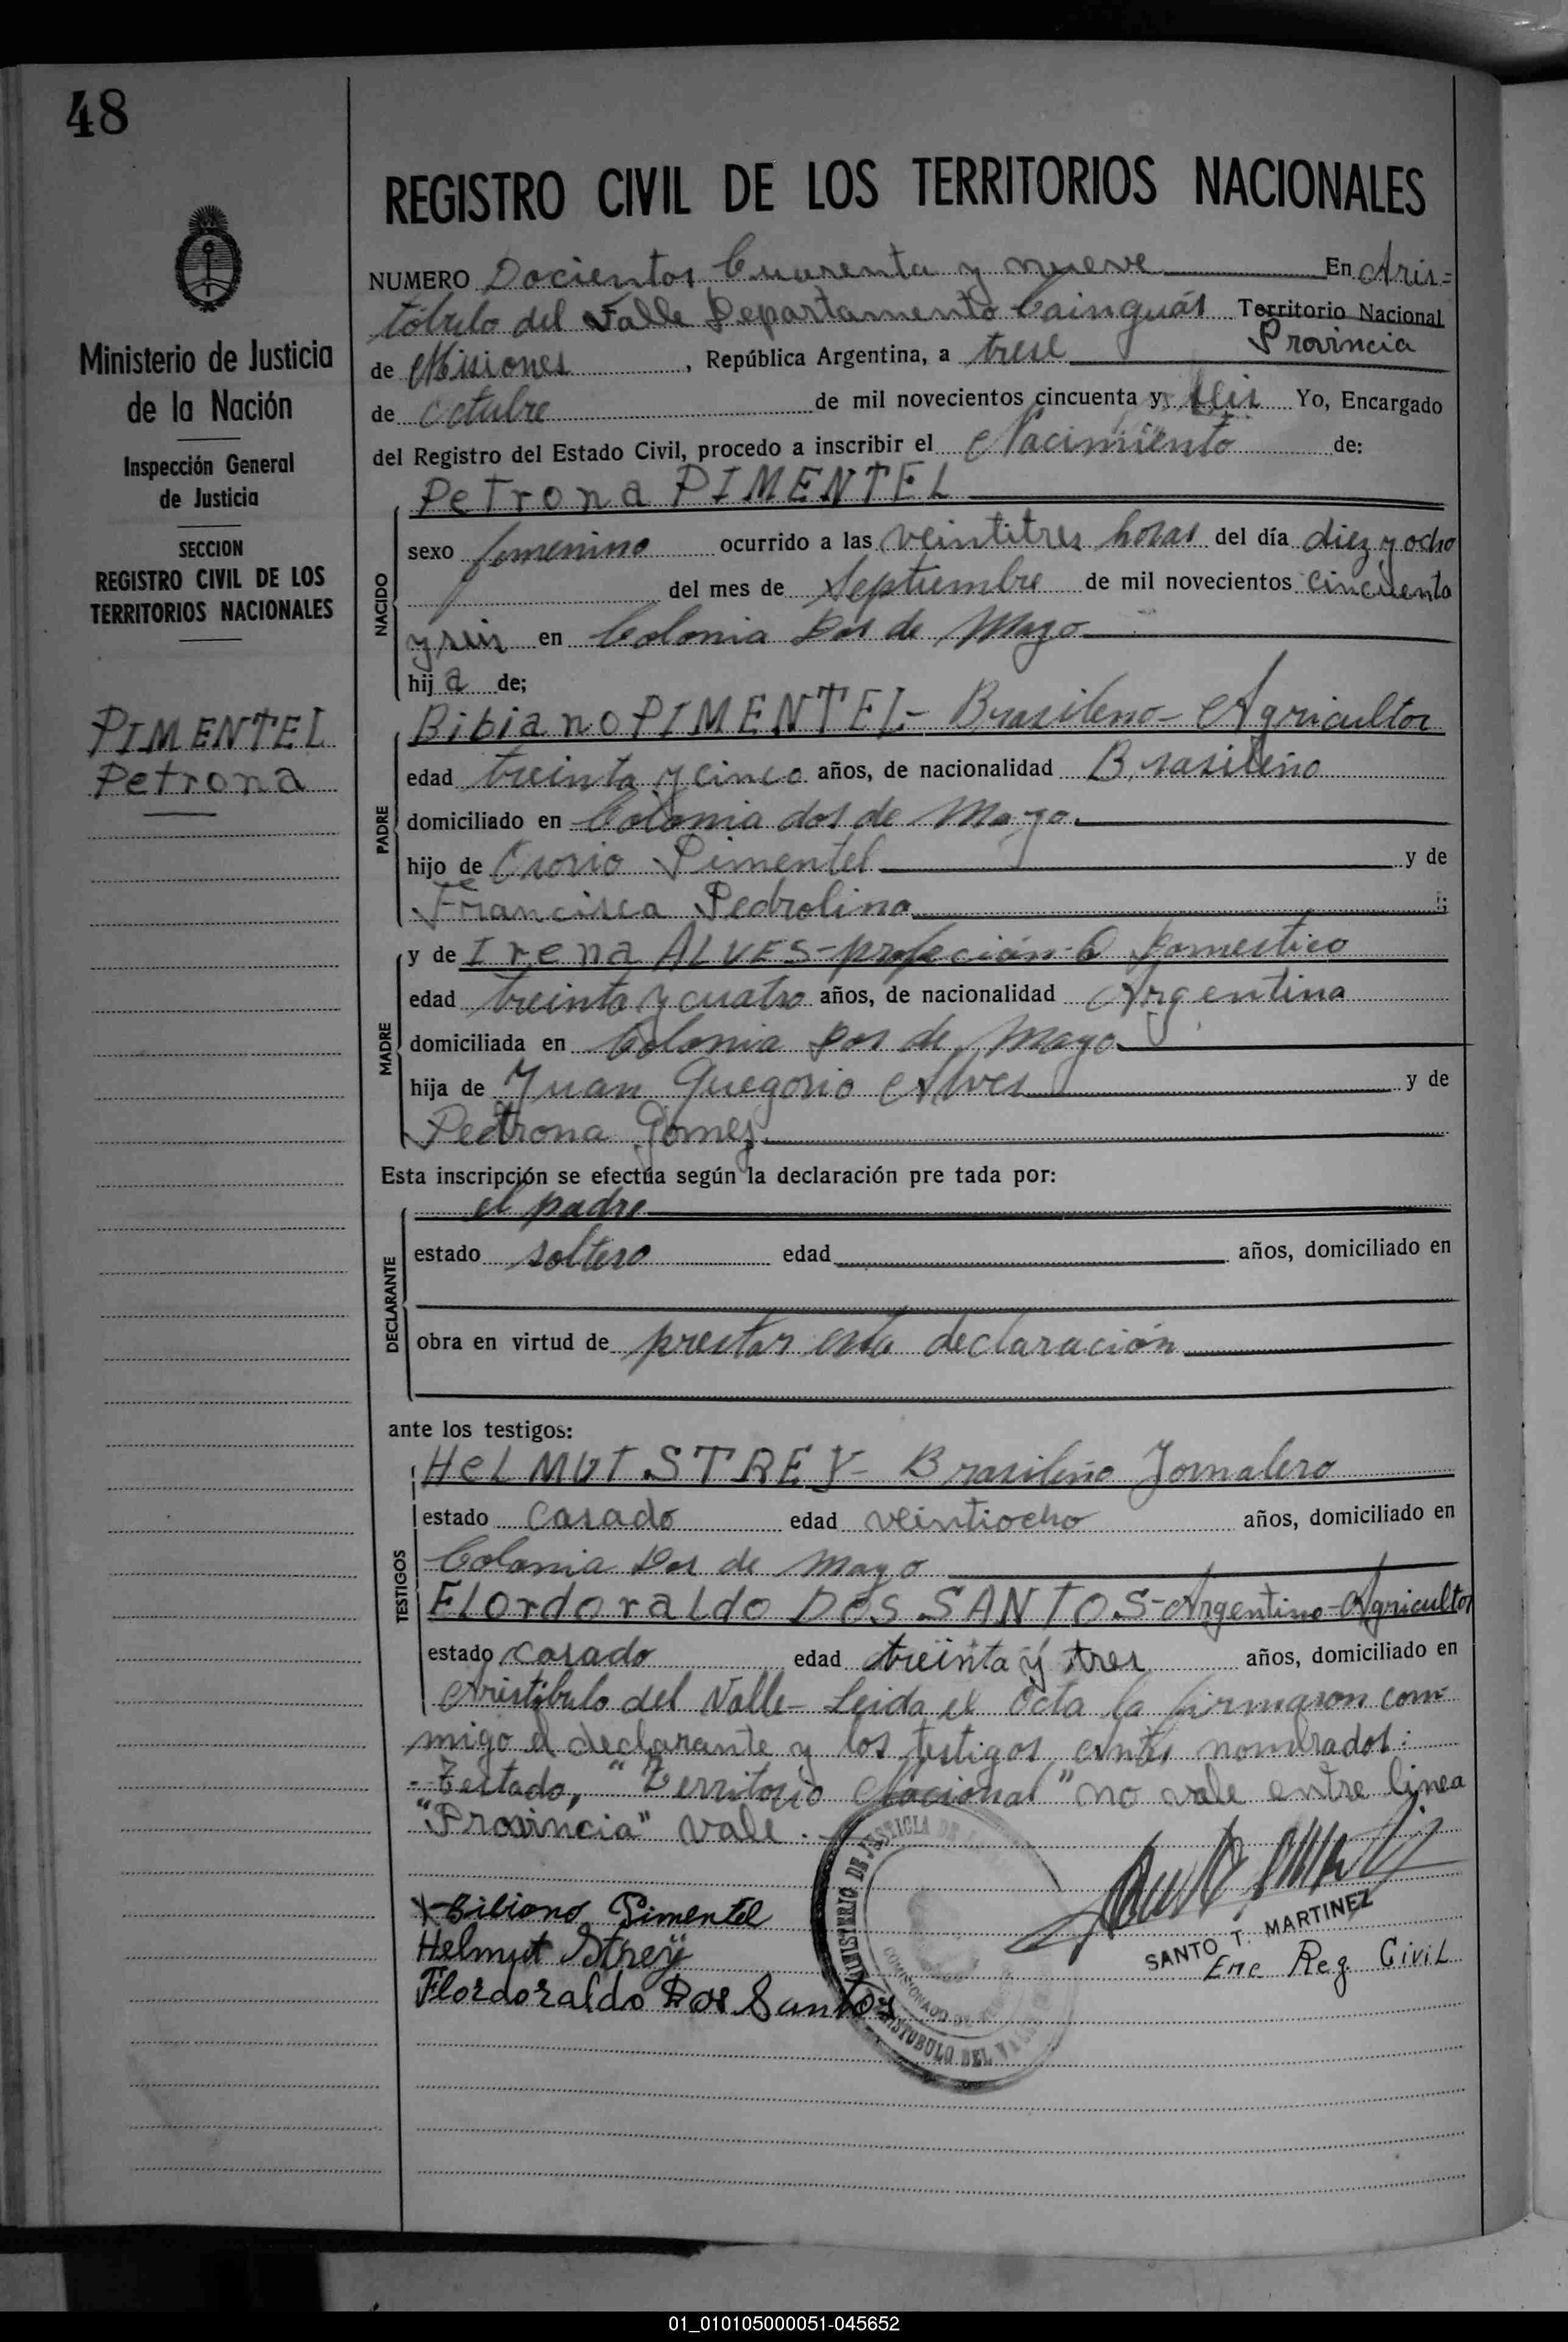 48
REGISTRO CIVIL DE LOS TERRITORIOS NACIONALES
Ministerio de Justicia
de la Nación
Inspección General
de Justicia
SECCION
REGISTRO CIVIL DE LOS
TERRITORIOS NACIONALES
PIMENTEL
Petrona
NUMERO Docientos Cuarenta y nueve En Aris=
tóbulo del Valle Departamento Cainguás Territorio Nacional
Provincia
de Misiones, República Argentina, a trese
de octubre de mil novecientos cincuenta y seis Yo, Encargado
del Registro del Estado Civil, procedo a inscribir el Nacimiento de:
Petrona PIMENTEL
NACIDO
sexo femenino ocurrido a las veintitres horas del día diez y ocho
del mes de Septiembre de mil novecientos cincuenta
y seis en Colonia Dos de Mayo
hij a de;
PADRE
Bibiano PIMENTEL- Brasileno- Agricultor
edad treinta y cinco años, de nacionalidad Brasileño
domiciliado en Colonia dos de Mayo
hijo de Osorio Pimentel y de
Francisca Pedrolina;
MADRE
y de Irena ALVES- profeción Q Domestico
edad treinta y cuatro años, de nacionalidad Argentina
domiciliada en Colonia Dos de Mayo
hija de Juan Guegorio Alves y de
Pedrona Gomez
Esta inscripción se efectúa según la declaración pre tada por:
el padre
DECLARANTE
estado soltero edad años, domiciliado en
obra en virtud de prestar esta declaración
ante los testigos:
TESTIGOS
HelMUT STREY- Brasileño Jornalero
estado casado edad veintiocho años, domiciliado en
Colonia Dos de Mayo
Flordoraldo DOS SANTOS-Argentino-Agricultor
estado casado edad treinta y tres años, domiciliado en
Aristóbulo del Valle- Leida el acta la firmaron con-
migo el declarante y los testigos antes nombrados:
-Testado, "Territorio Nacional" no vale entre linea
"Provincia" vale.
Bibiano Pimentel
Helmut Strey
Flordoraldo Dos Santos
MINISTERIO DE JUSTICIA DE
ARISTOBULO DEL VALLE
SANTO T. MARTINEZ
Enc Reg. Civil
01_010105000051-045652